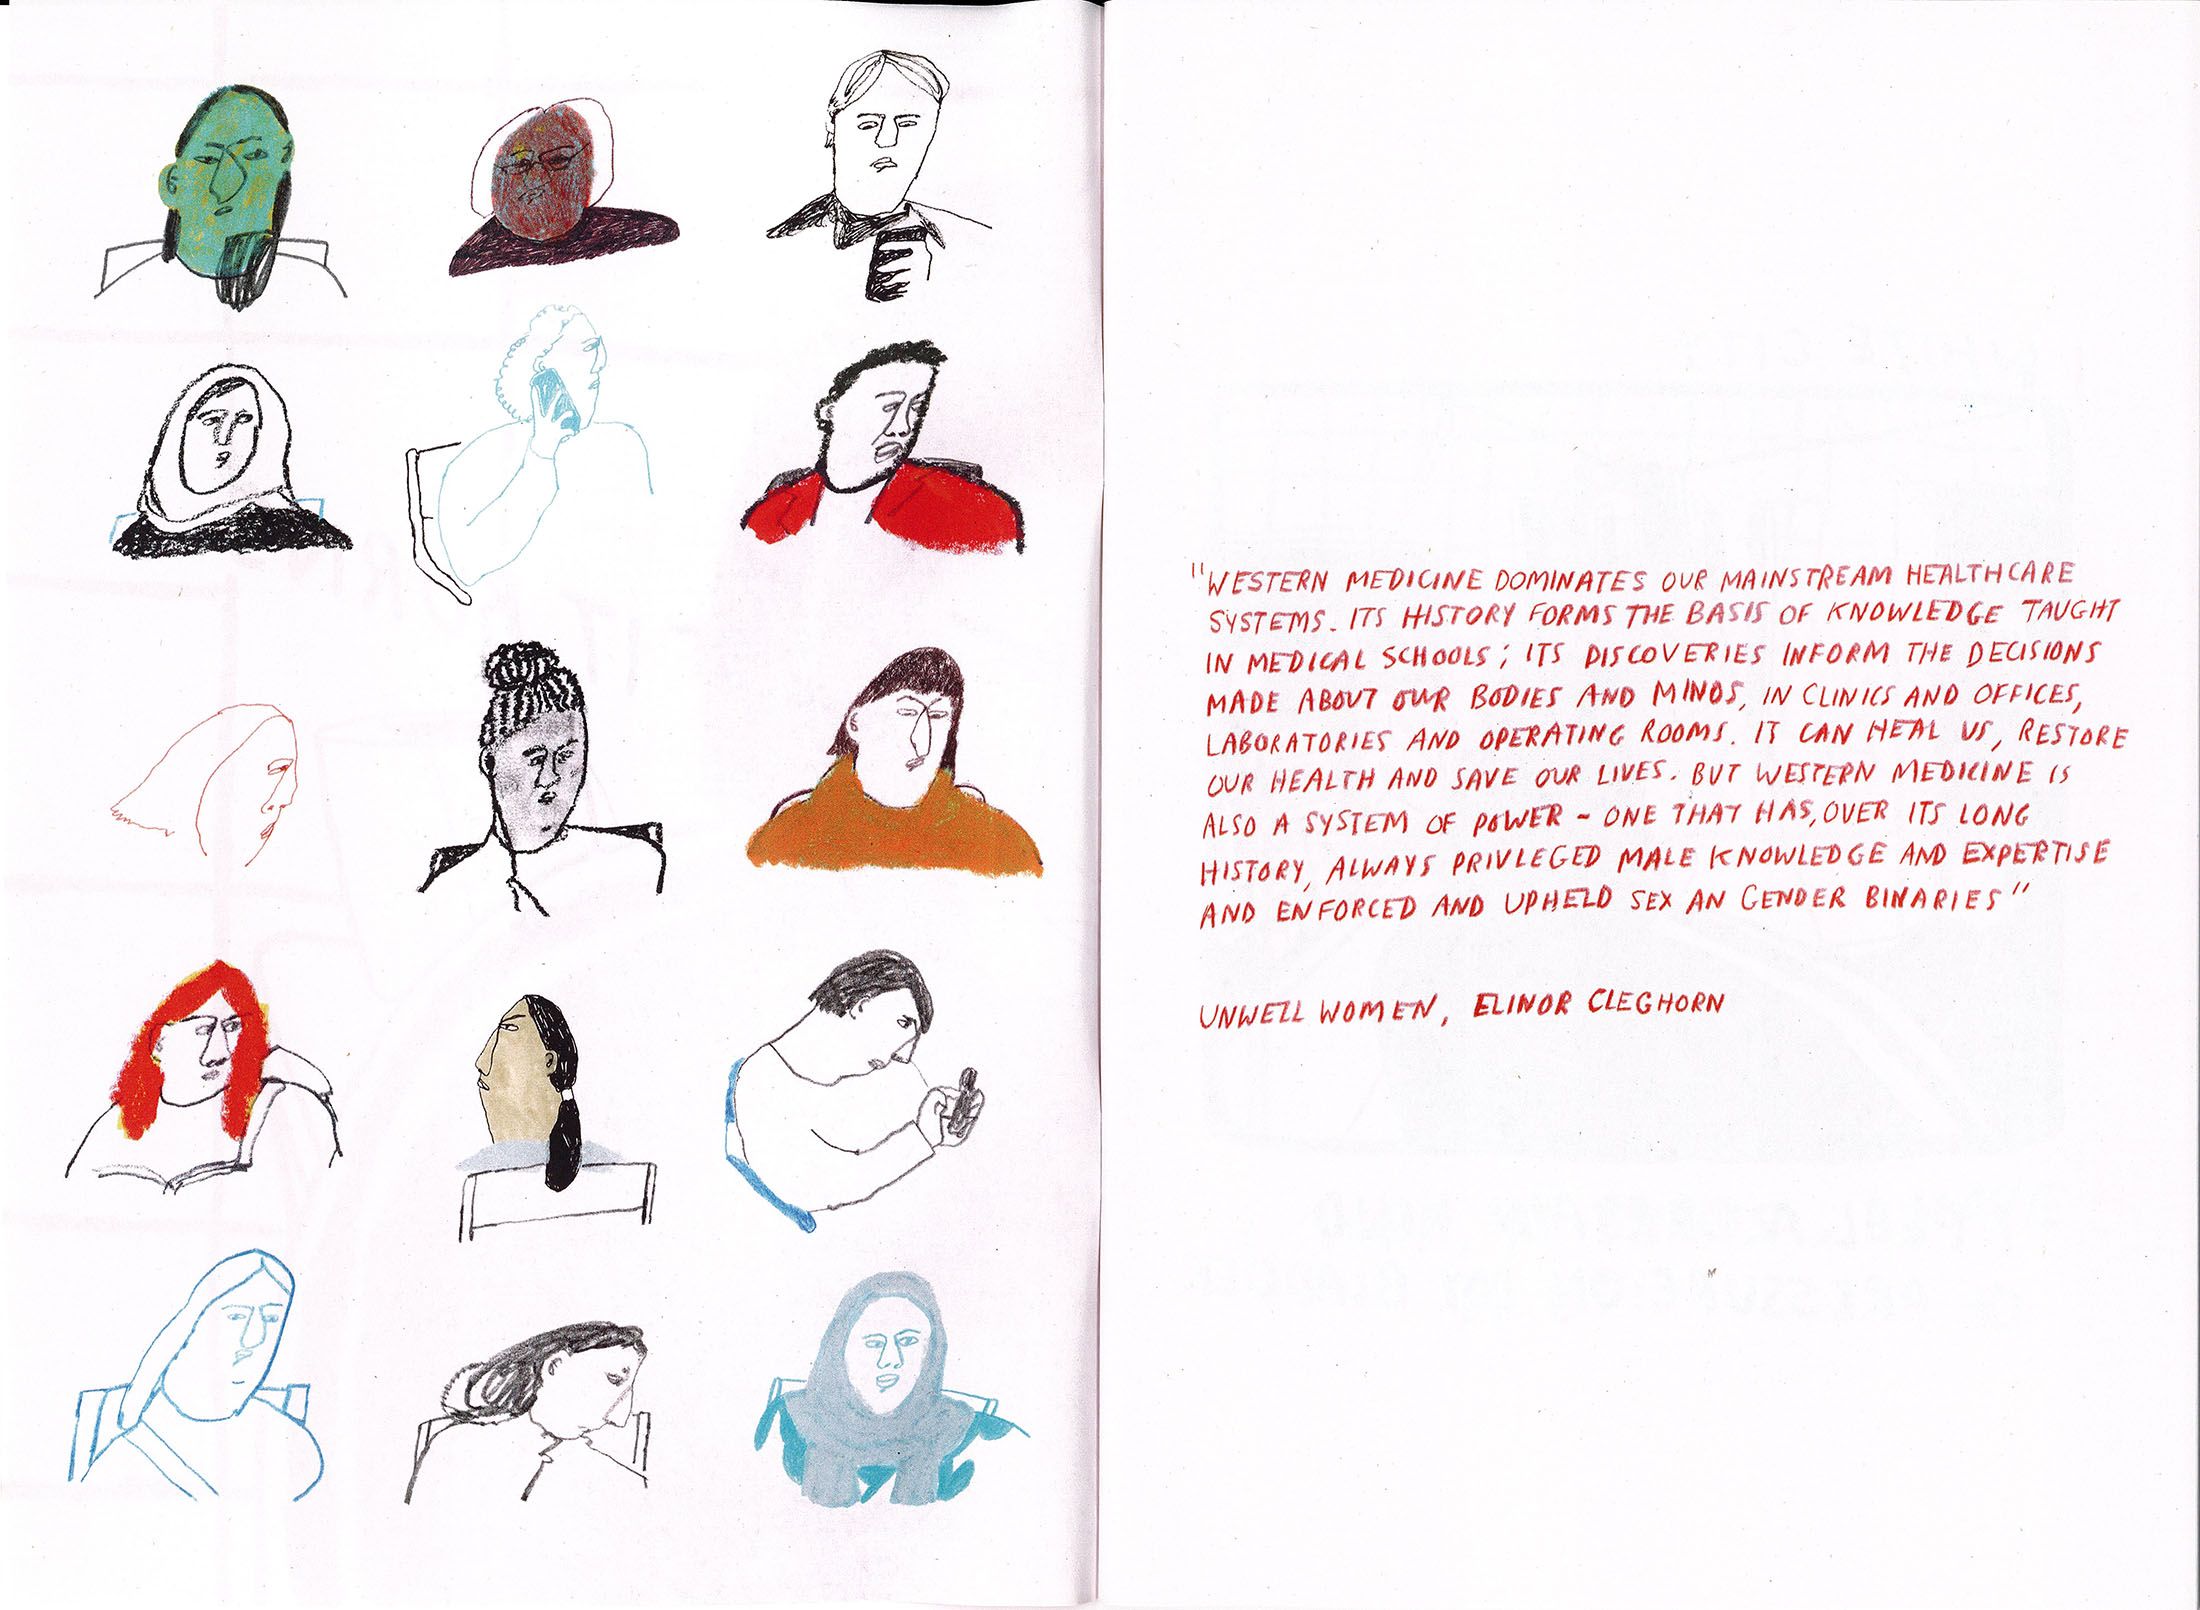 "WESTERN MEDICINE DOMINATES OUR MAINSTREAM HEALTHCARE
SYSTEMS. ITS HISTORY FORMS THE BASIS OF KNOWLEDGE TAUGHT
IN MEDICAL SCHOOLS; ITS DISCOVERIES INFORM THE DECISIONS
MADE ABOUT OUR BODIES AND MINDS, IN CLINICS AND OFFICES,
LABORATORIES AND OPERATING ROOMS. IT CAN HEAL US, RESTORE
OUR HEALTH AND SAVE OUR LIVES. BUT WESTERN MEDICINE IS
ALSO A SYSTEM OF POWER - ONE THAT HAS, OVER ITS LONG
HISTORY, ALWAYS PRIVLEGED MALE KNOWLEDGE AND EXPERTISE
AND ENFORCED AND UPHELD SEX AN GENDER BINARIES"
UNWELL WOMEN, ELINOR CLEGHORN